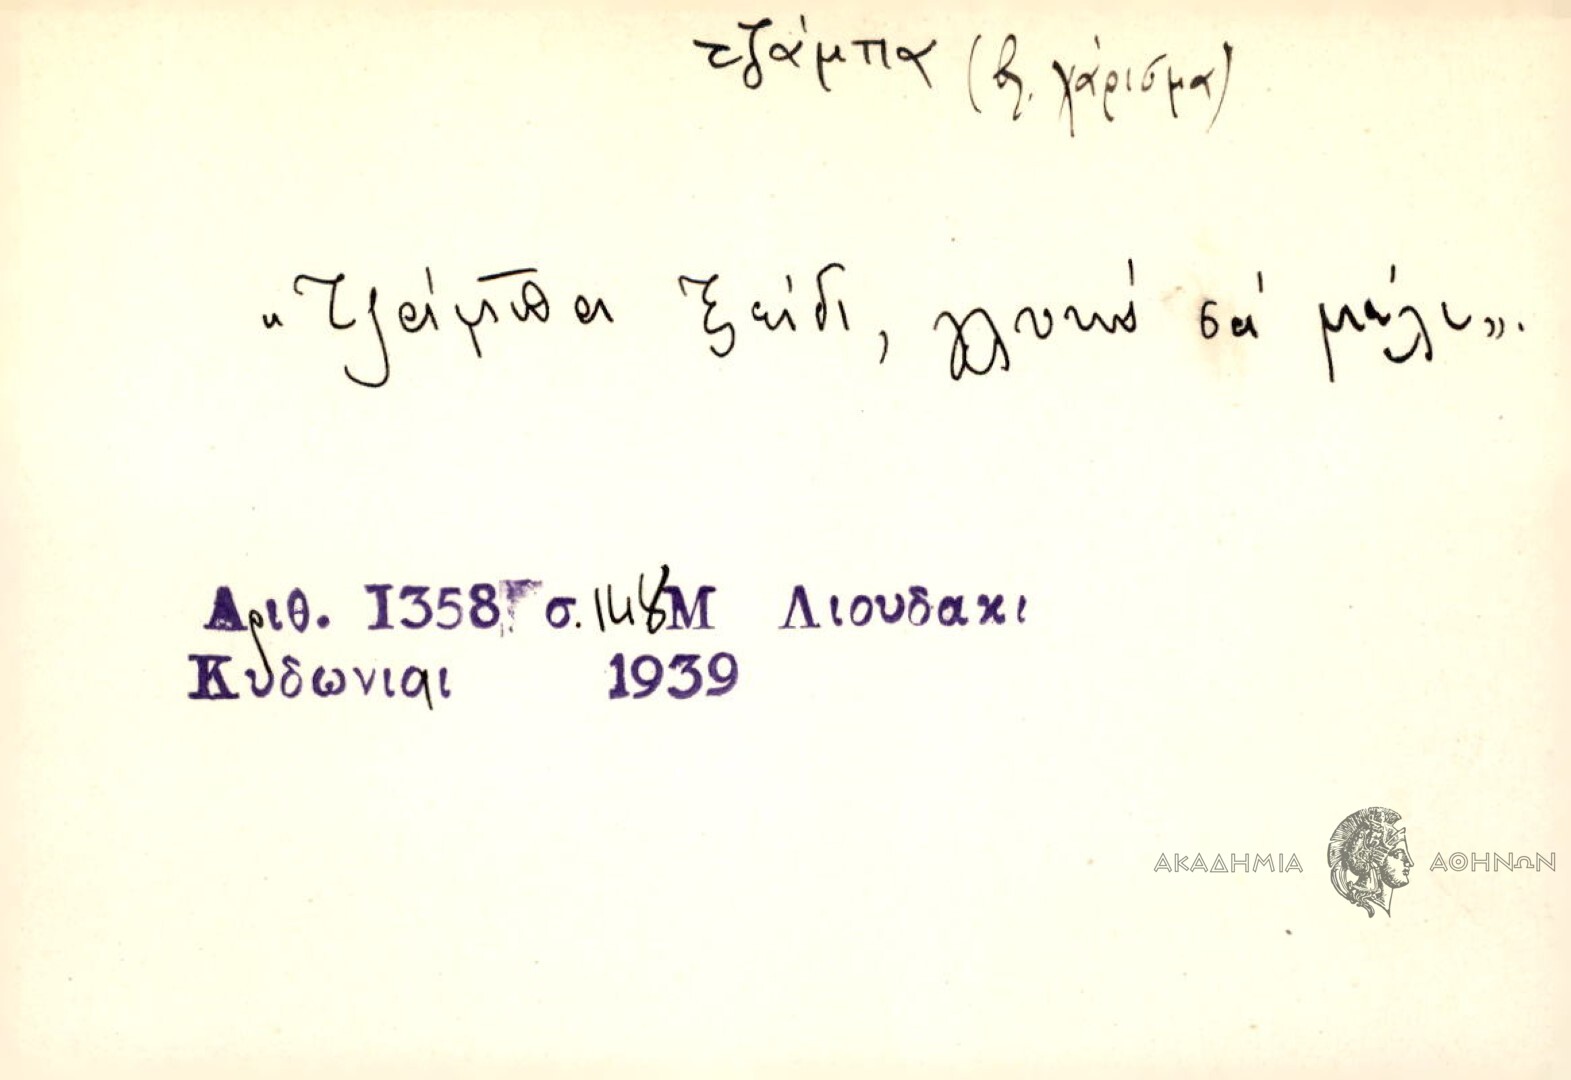 τζάμπα (βλ. χάρισμα)
«Τζάμπα ξείδι, γλυκό σά μέλι».
Αριθ. 1358, σ. 148 Μ Λιουδακι
Κυδωνιαι 1939
ΑΚΑΔΗΜΙΑ ΑΘΗΝΩΝ